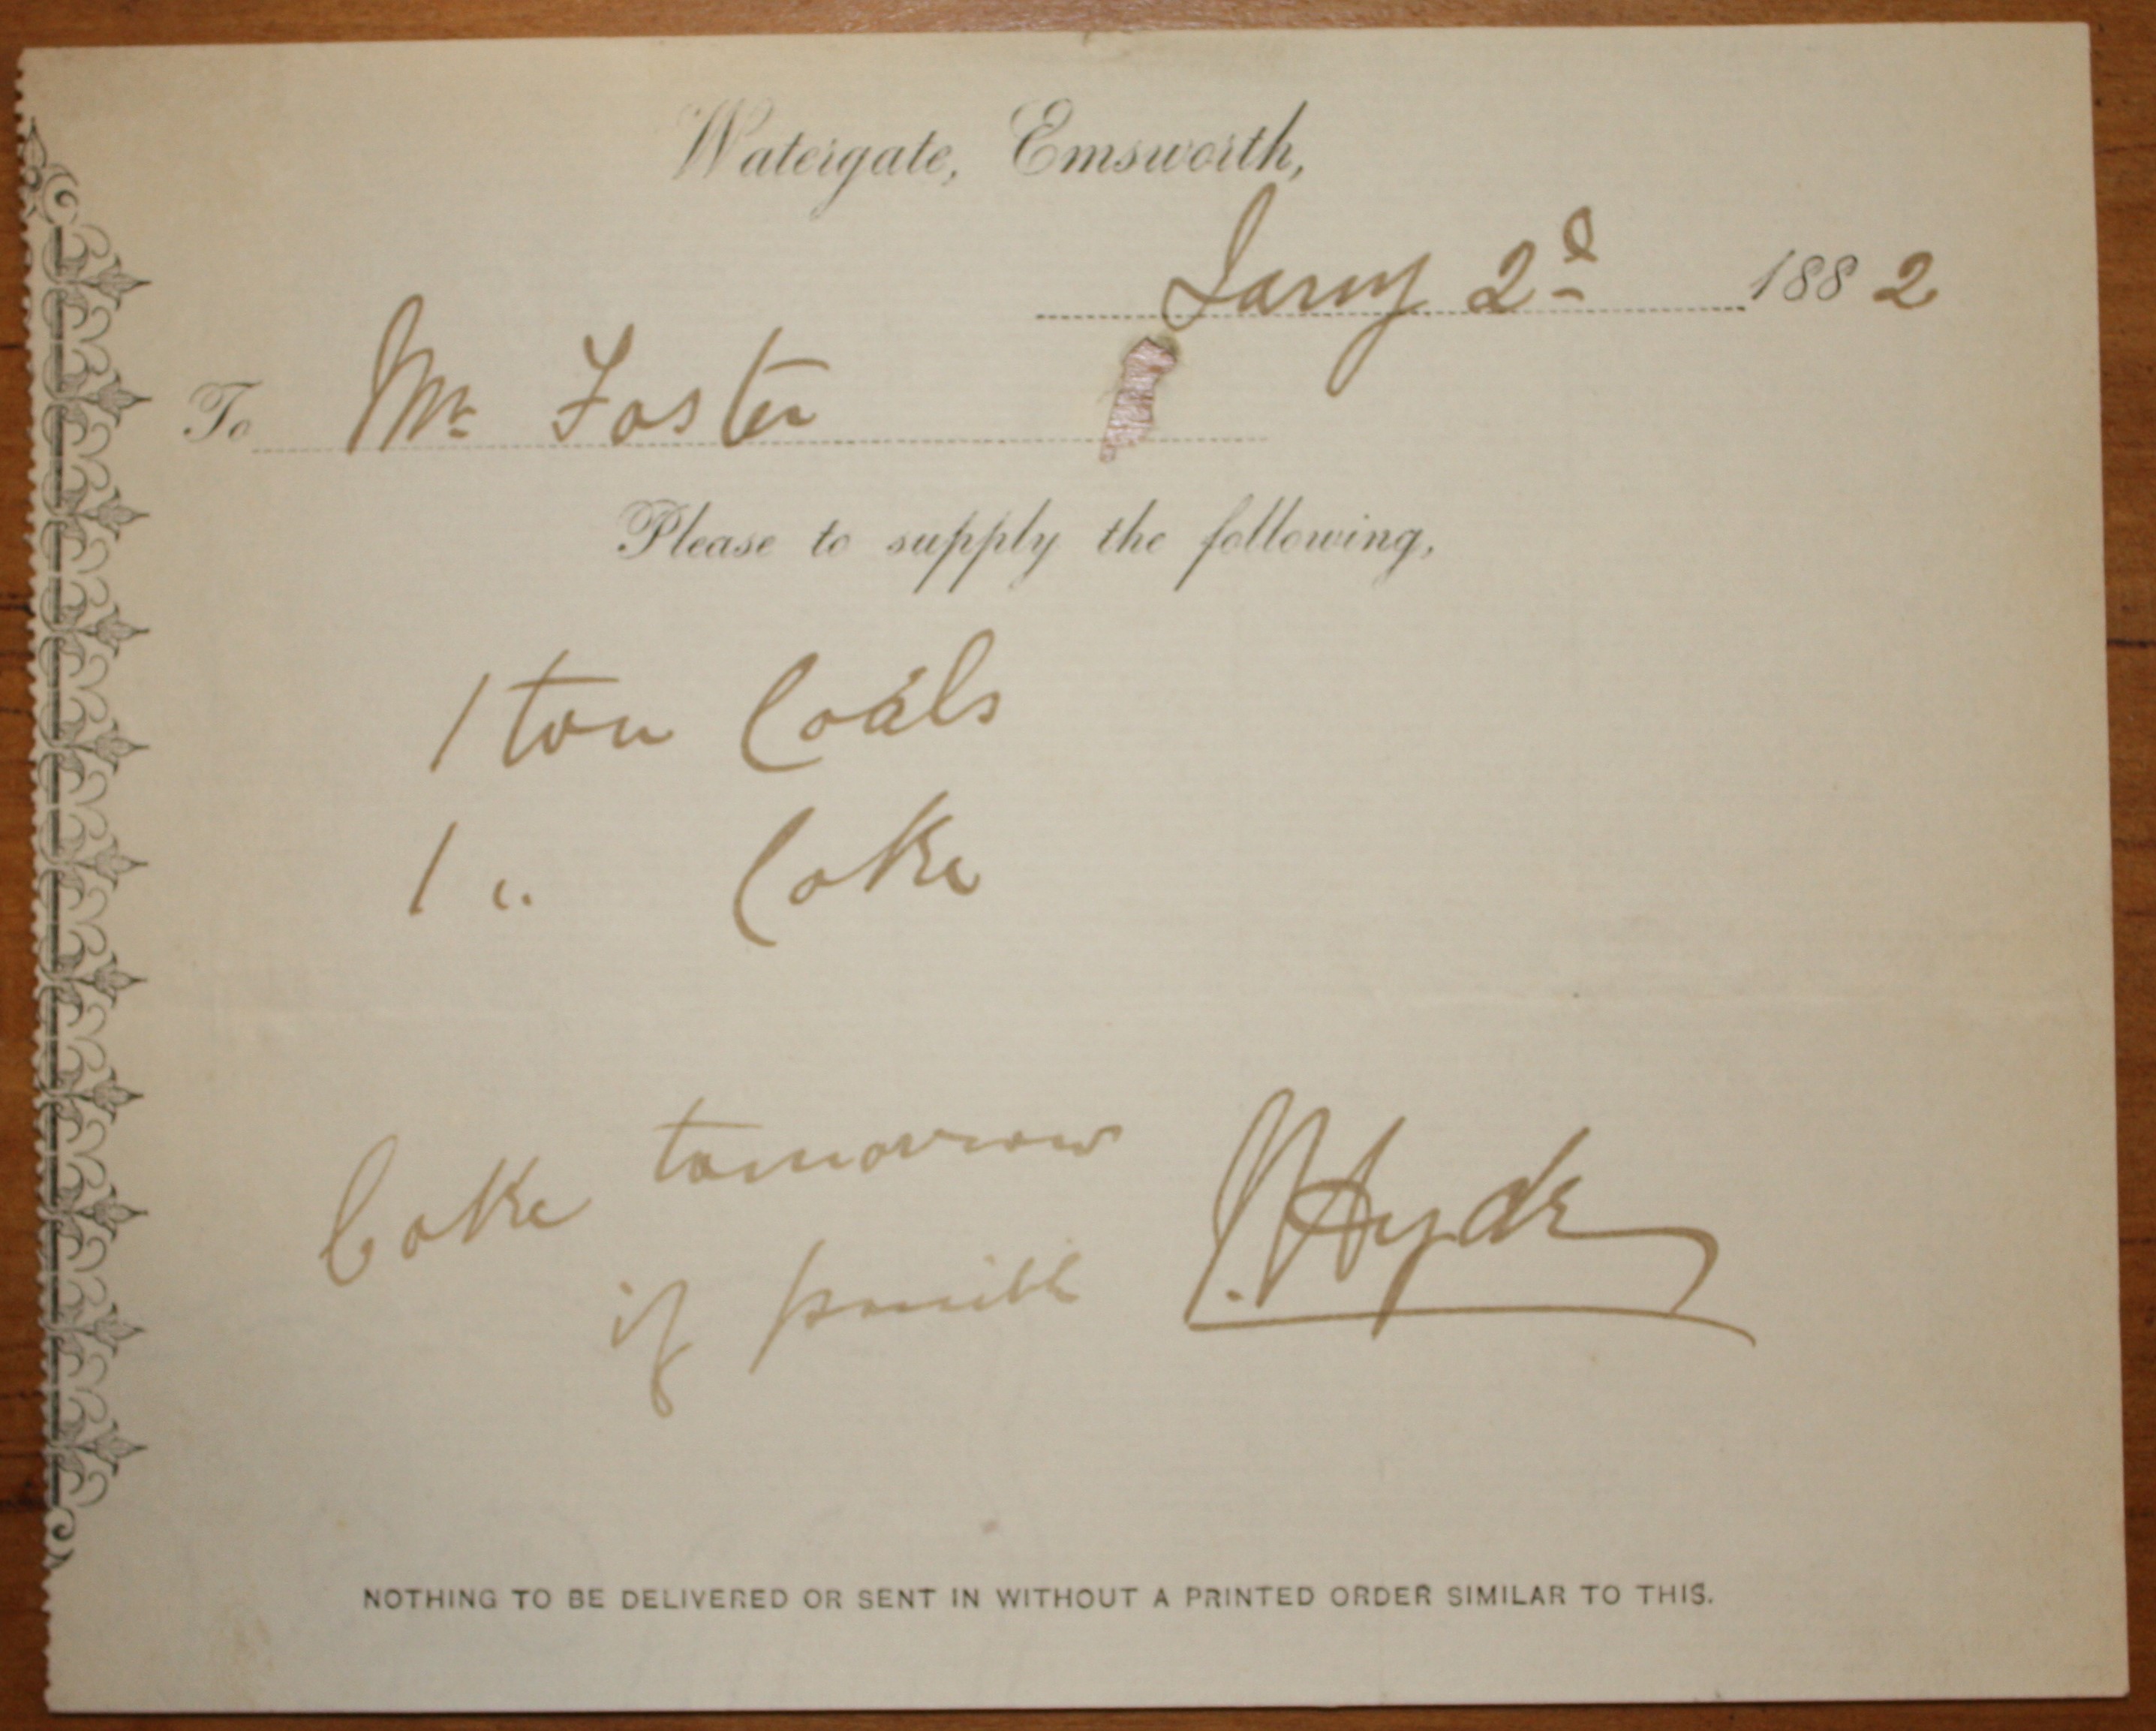 Watergate, Emsworth,
Jany 2d 1882
To Mr Foster
Please to supply the following,
1 ton Coals
1 " Coke
Coke tomorrow
if possible
Hyde
NOTHING TO BE DELIVERED OR SENT IN WITHOUT A PRINTED ORDER SIMILAR TO THIS.